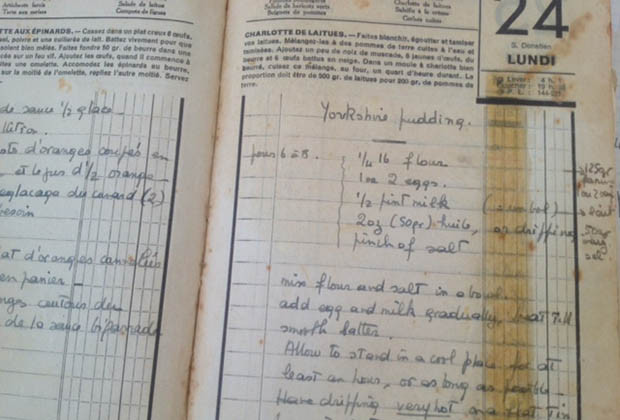 Salade de laitues
Compote de figues
Charlotte de laitues
TTE AUX ÉPINARDS. — Cassez dans un plat creux 6 œufs,
sel, poivre et une cuillerée de lait. Battez vivement pour que
soient bien mêlés. Faites fondre 50 gr. de beurre dans une
sur un feu vif. Ajoutez les œufs, quand il commence à
une omelette. Accomodez les épinards au beurre,
sur la moitié de l'omelette, repliez l'autre moitié. Servez
de sauce 1/2 glace
d'oranges coupés en
et le jus d'1/2 orange
glacage du canard (2)
besoin
d'oranges
en panier
autour de
de la sauce bigarrade
CHARLOTTE DE LAITUES. — Faites blanchir, égoutter et tamiser
vos laitues. Mélangez-les à des pommes de terre cuites à l'eau et
tamisées. Ajoutez un peu de noix de muscade, 6 jaunes d'œufs, du
beurre et 6 œufs battus en neige. Dans un moule à charlotte bien
beurré, cuisez ce mélange, au four, un quart d'heure durant. La
proportion doit être de 500 gr. de laitues pour 200 gr. de pommes de
terre.
24
S. Donatien
LUNDI
Yorkshire pudding.
pour 6 à 8.
1/4 lb flour
1 or 2 eggs.
1/2 pint milk
2oz (50gr) huile, or dripping
pinch of salt
125gr
50gr
sel
mix flour and salt in a bowl.
add egg and milk gradually, beat till
smooth batter.
Allow to stand in a cool place for at
least an hour, or as long as possible
Have dripping very hot